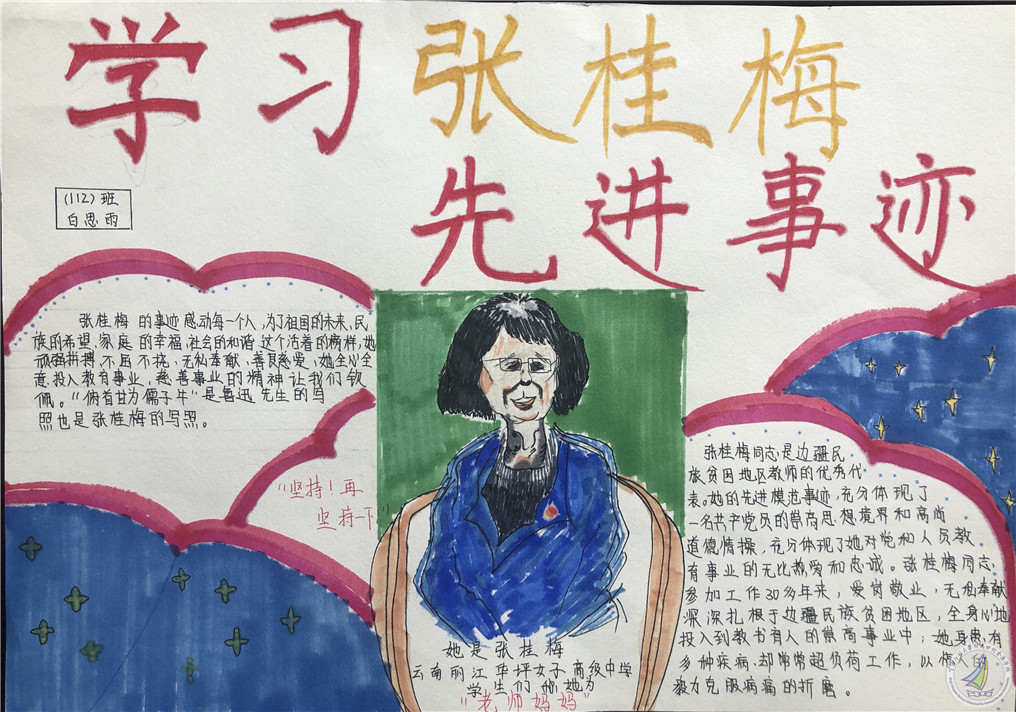 学习张桂梅
先进事迹
(112)班
白思雨
张桂梅的事迹感动每一个人,为了祖国的未来、民
族的希望、家庭的幸福,社会的和谐这个活着的榜样,她
顽强拼搏、不屈不挠,无私奉献,善良慈爱,她全心全
意投入教育事业,慈善事业的精神让我们钦
佩。“俯首甘为儒子牛”是鲁迅先生的写
照也是张桂梅的写照。
“坚持!再
坚持一下”
她是张桂梅
云南丽江华坪女子高级中学
学生们称她为
“老师妈妈”
张桂梅同志是边疆民
族贫困地区教师的优秀代
表。她的先进模范事迹,充分体现了
一名共产党员的崇高思想境界和高尚
道德情操,充分体现了她对党和人民教
育事业的无比热爱和忠诚。张桂梅同志,
参加工作30多年来,爱岗敬业,无私奉献
深深扎根于边疆民族贫困地区,全身心地
投入到教书育人的崇高事业中;她身患有
多种疾病,却常常超负荷工作,以 的
毅力克服病痛的折磨。